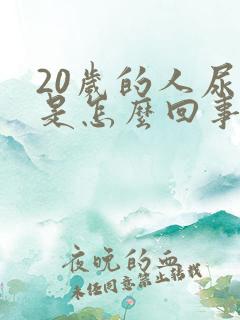 20歲的人尿
是怎麼回事
夜晚的血
未任同意禁止轉載